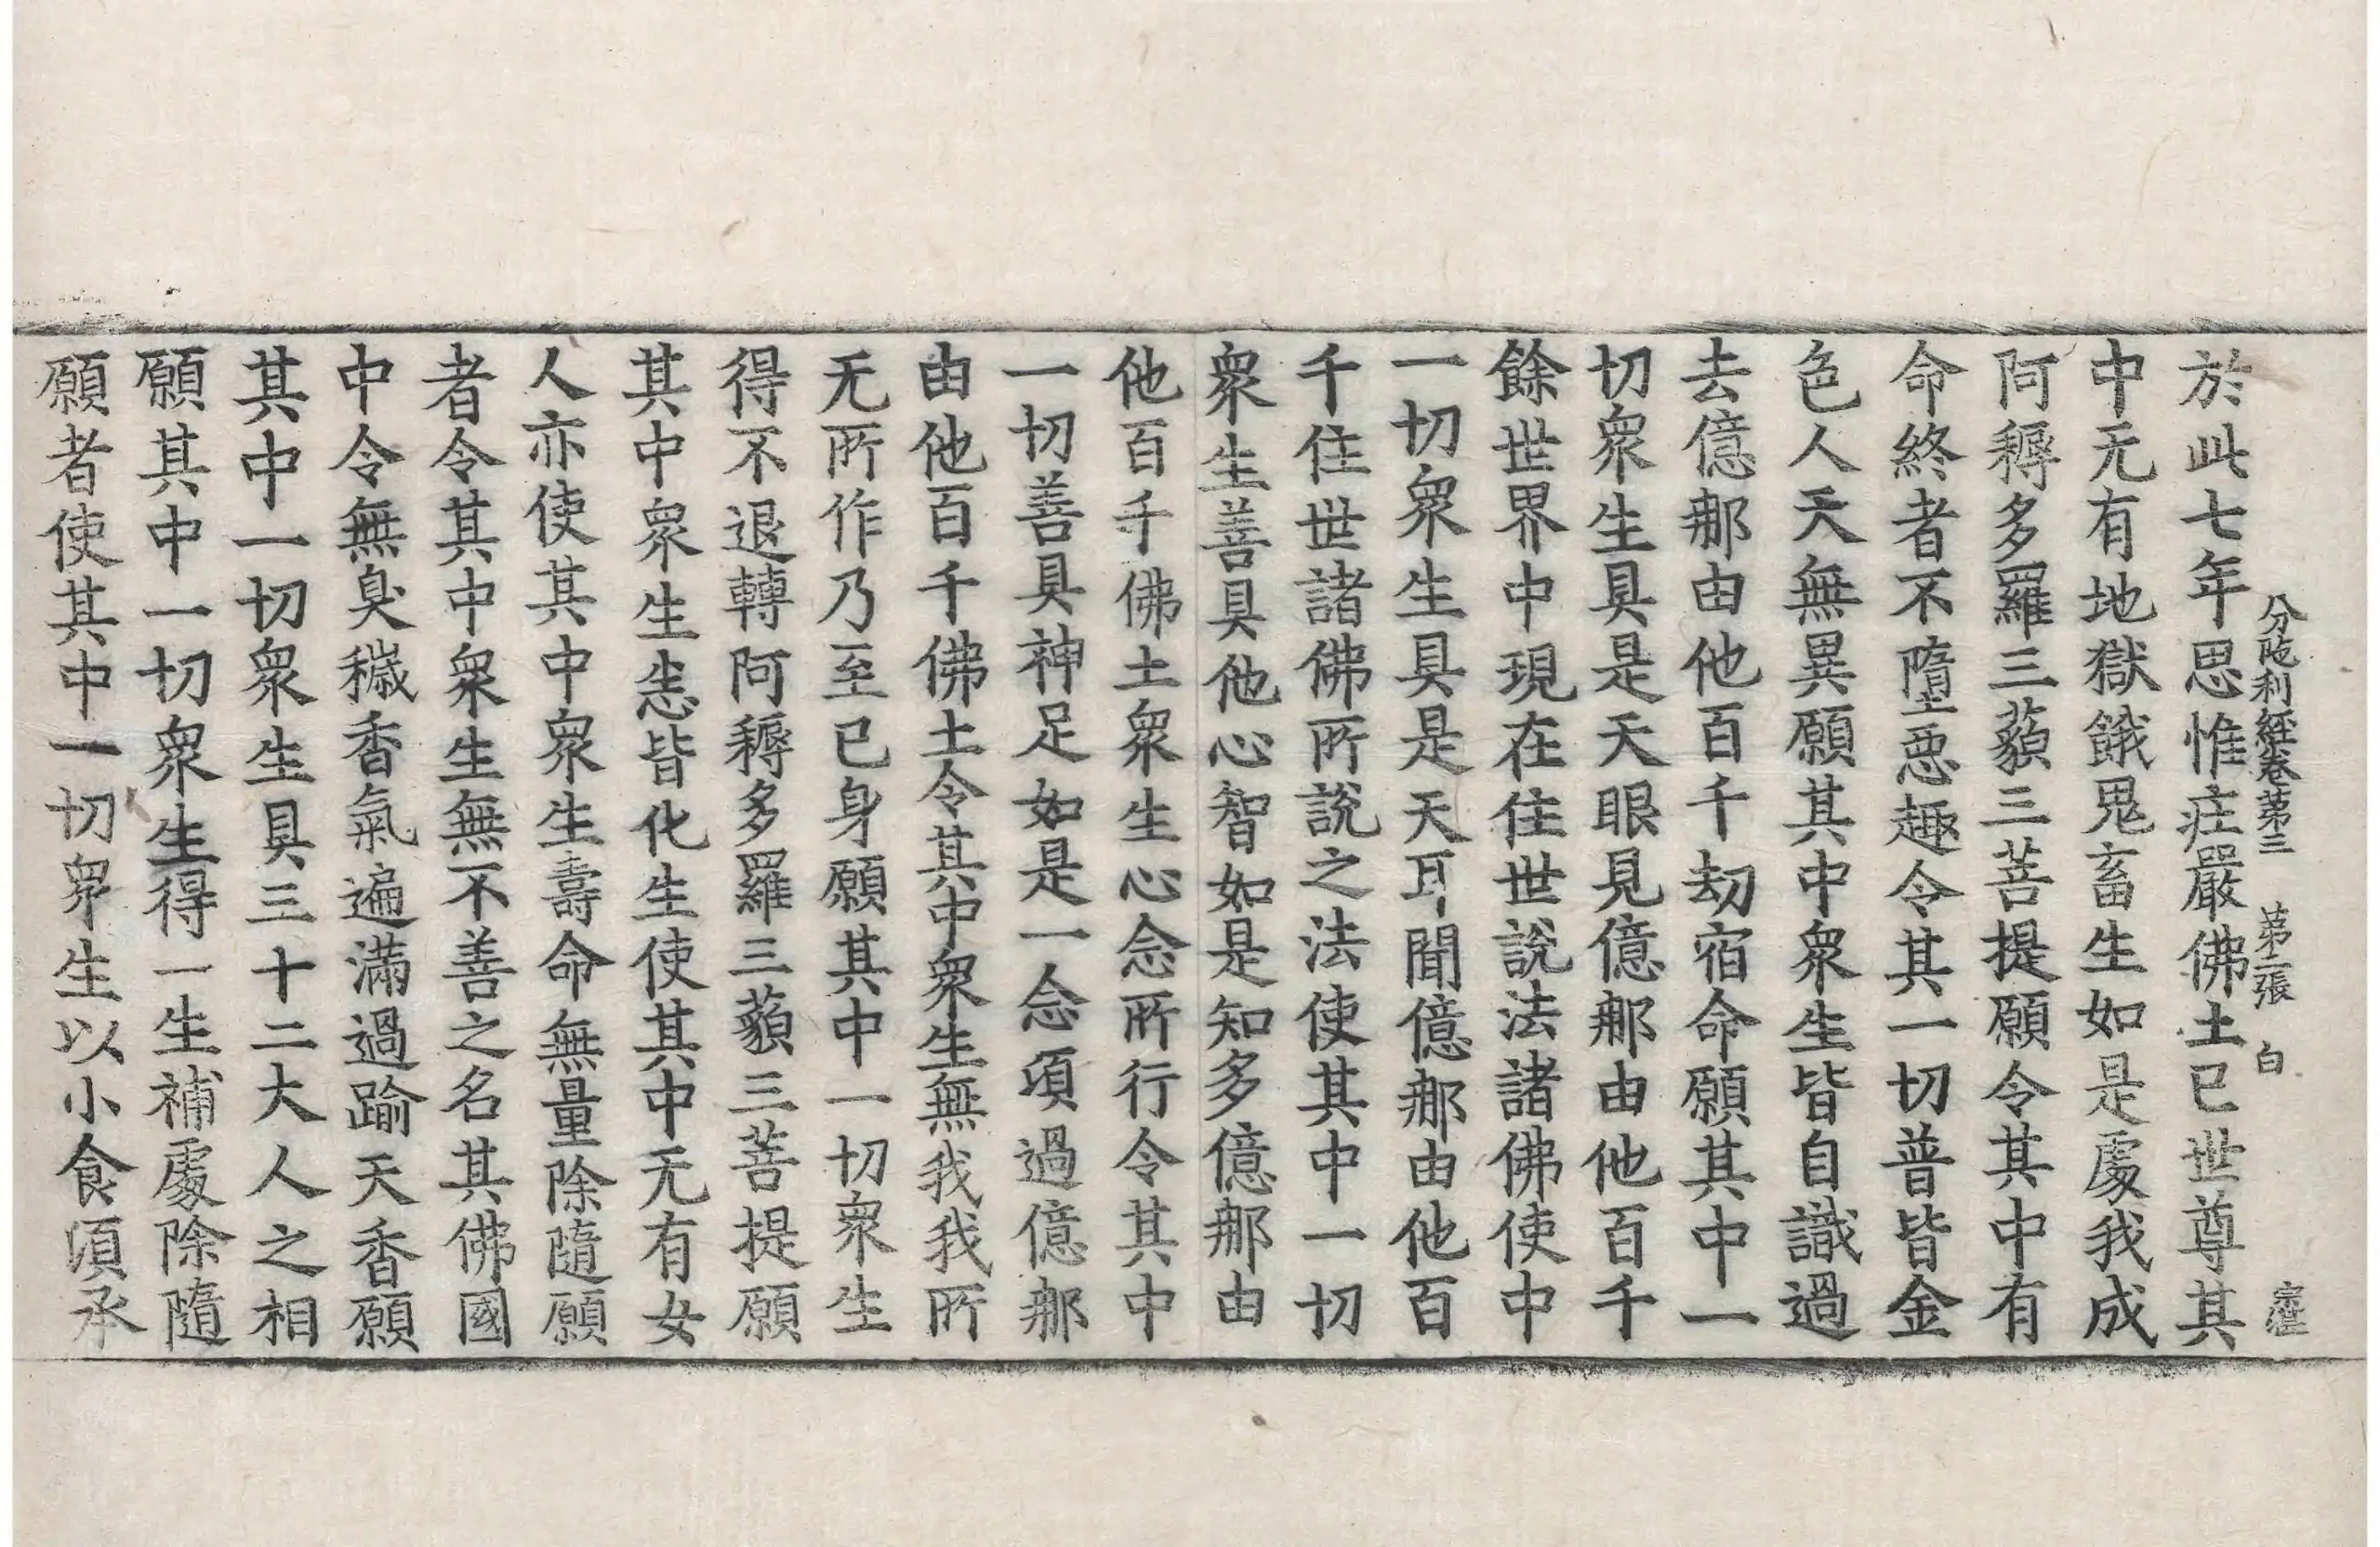 分陁利經卷第三 第二張 白
於此七年思惟疘嚴佛土已世尊其
中无有地獄餓鬼畜生如是處我成
阿耨多羅三藐三菩提願令其中有
命終者不墮惡趣令其一切普皆金
色人天無異願其中衆生皆自識過
去億那由他百千劫宿命願其中一
切衆生具是天眼見億那由他百千
餘世界中現在住世說法諸佛使中
一切衆生具是天耳聞億那由他百
千住世諸佛所說之法使其中一切
衆生善具他心智如是知多億那由
他百千佛土衆生心念所行令其中
一切善具神足如是一念項過億那
由他百千佛土令其中衆生無我我所
无所作乃至已身願其中一切衆生
得不退轉阿耨多羅三藐三菩提願
其中衆生悉皆化生使其中无有女
人亦使其中衆生壽命無量除隨願
者令其中衆生無不善之名其佛國
中令無臭穢香氣遍滿過踰天香願
其中一切衆生具三十二大人之相
願其中一切衆生得一生補處除隨
願者使其中一切衆生以小食湏承